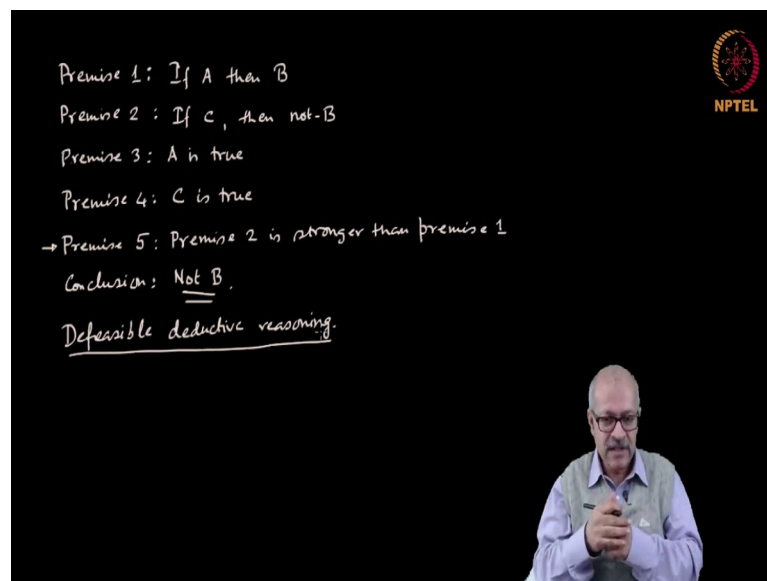 Premise 1: If A then B
Premise 2: If C, then not-B
Premise 3: A is true
Premise 4: C is true
→ Premise 5: Premise 2 is stronger than premise 1
Conclusion: Not B.
Defeasible deductive reasoning.
NPTEL